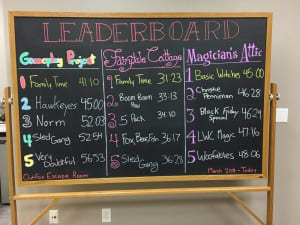 LEADERBOARD
Gameplay Project
1 Family Time 41:10
2 HawKeyes 45:00
3 Norm 52:03
4 Sled Gang 52:54
5 Very Doubtful 56:53
Outfox Escape Room
Fairytale Cottage
1 Family Time 31:23
2 Boom Boom 33:13
3 5 Pack 34:10
4 Fox, Bear, Fish 36:17
5 Sled Gang 36:28
Magician's Attic
1 Basic Witches 45:00
2 Christie Penniman 46:28
3 Black Friday Special 46:29
4 LWC Magic 47:16
5 Woofables 48:06
March 2018 - Today